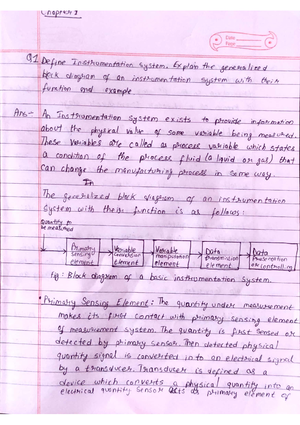 Chapter 1
Date
Page
Q.1 Define Instrumentation System. Explain the generalized
block diagram of an instrumentation system with their
function and example.
Ans:- An Instrumentation system exists to provide information
about the physical value of some variable being measured.
These variables are called as process variable which states
a condition of the process fluid (a liquid or gas) that
can change the manufacturing process in some way.
In
The generalized block diagram of an instrumentation
system with their function is as follows:
Quantity to
be measured
Primary Sensing element
Variable conversion element
Variable manipulation element
Data transmission element
Data Presentation or controlling
Fig: Block diagram of a basic instrumentation system.
• Primary Sensing Element: The quantity under measurement
makes its first contact with primary sensing element
of measurement system. The quantity is first sensed or
detected by primary sensor. Then detected physical
quantity signal is converted into an electrical signal
by a transducer. Transducer is defined as a
device which converts a physical quantity into an
electrical quantity. Sensor acts as primary element of